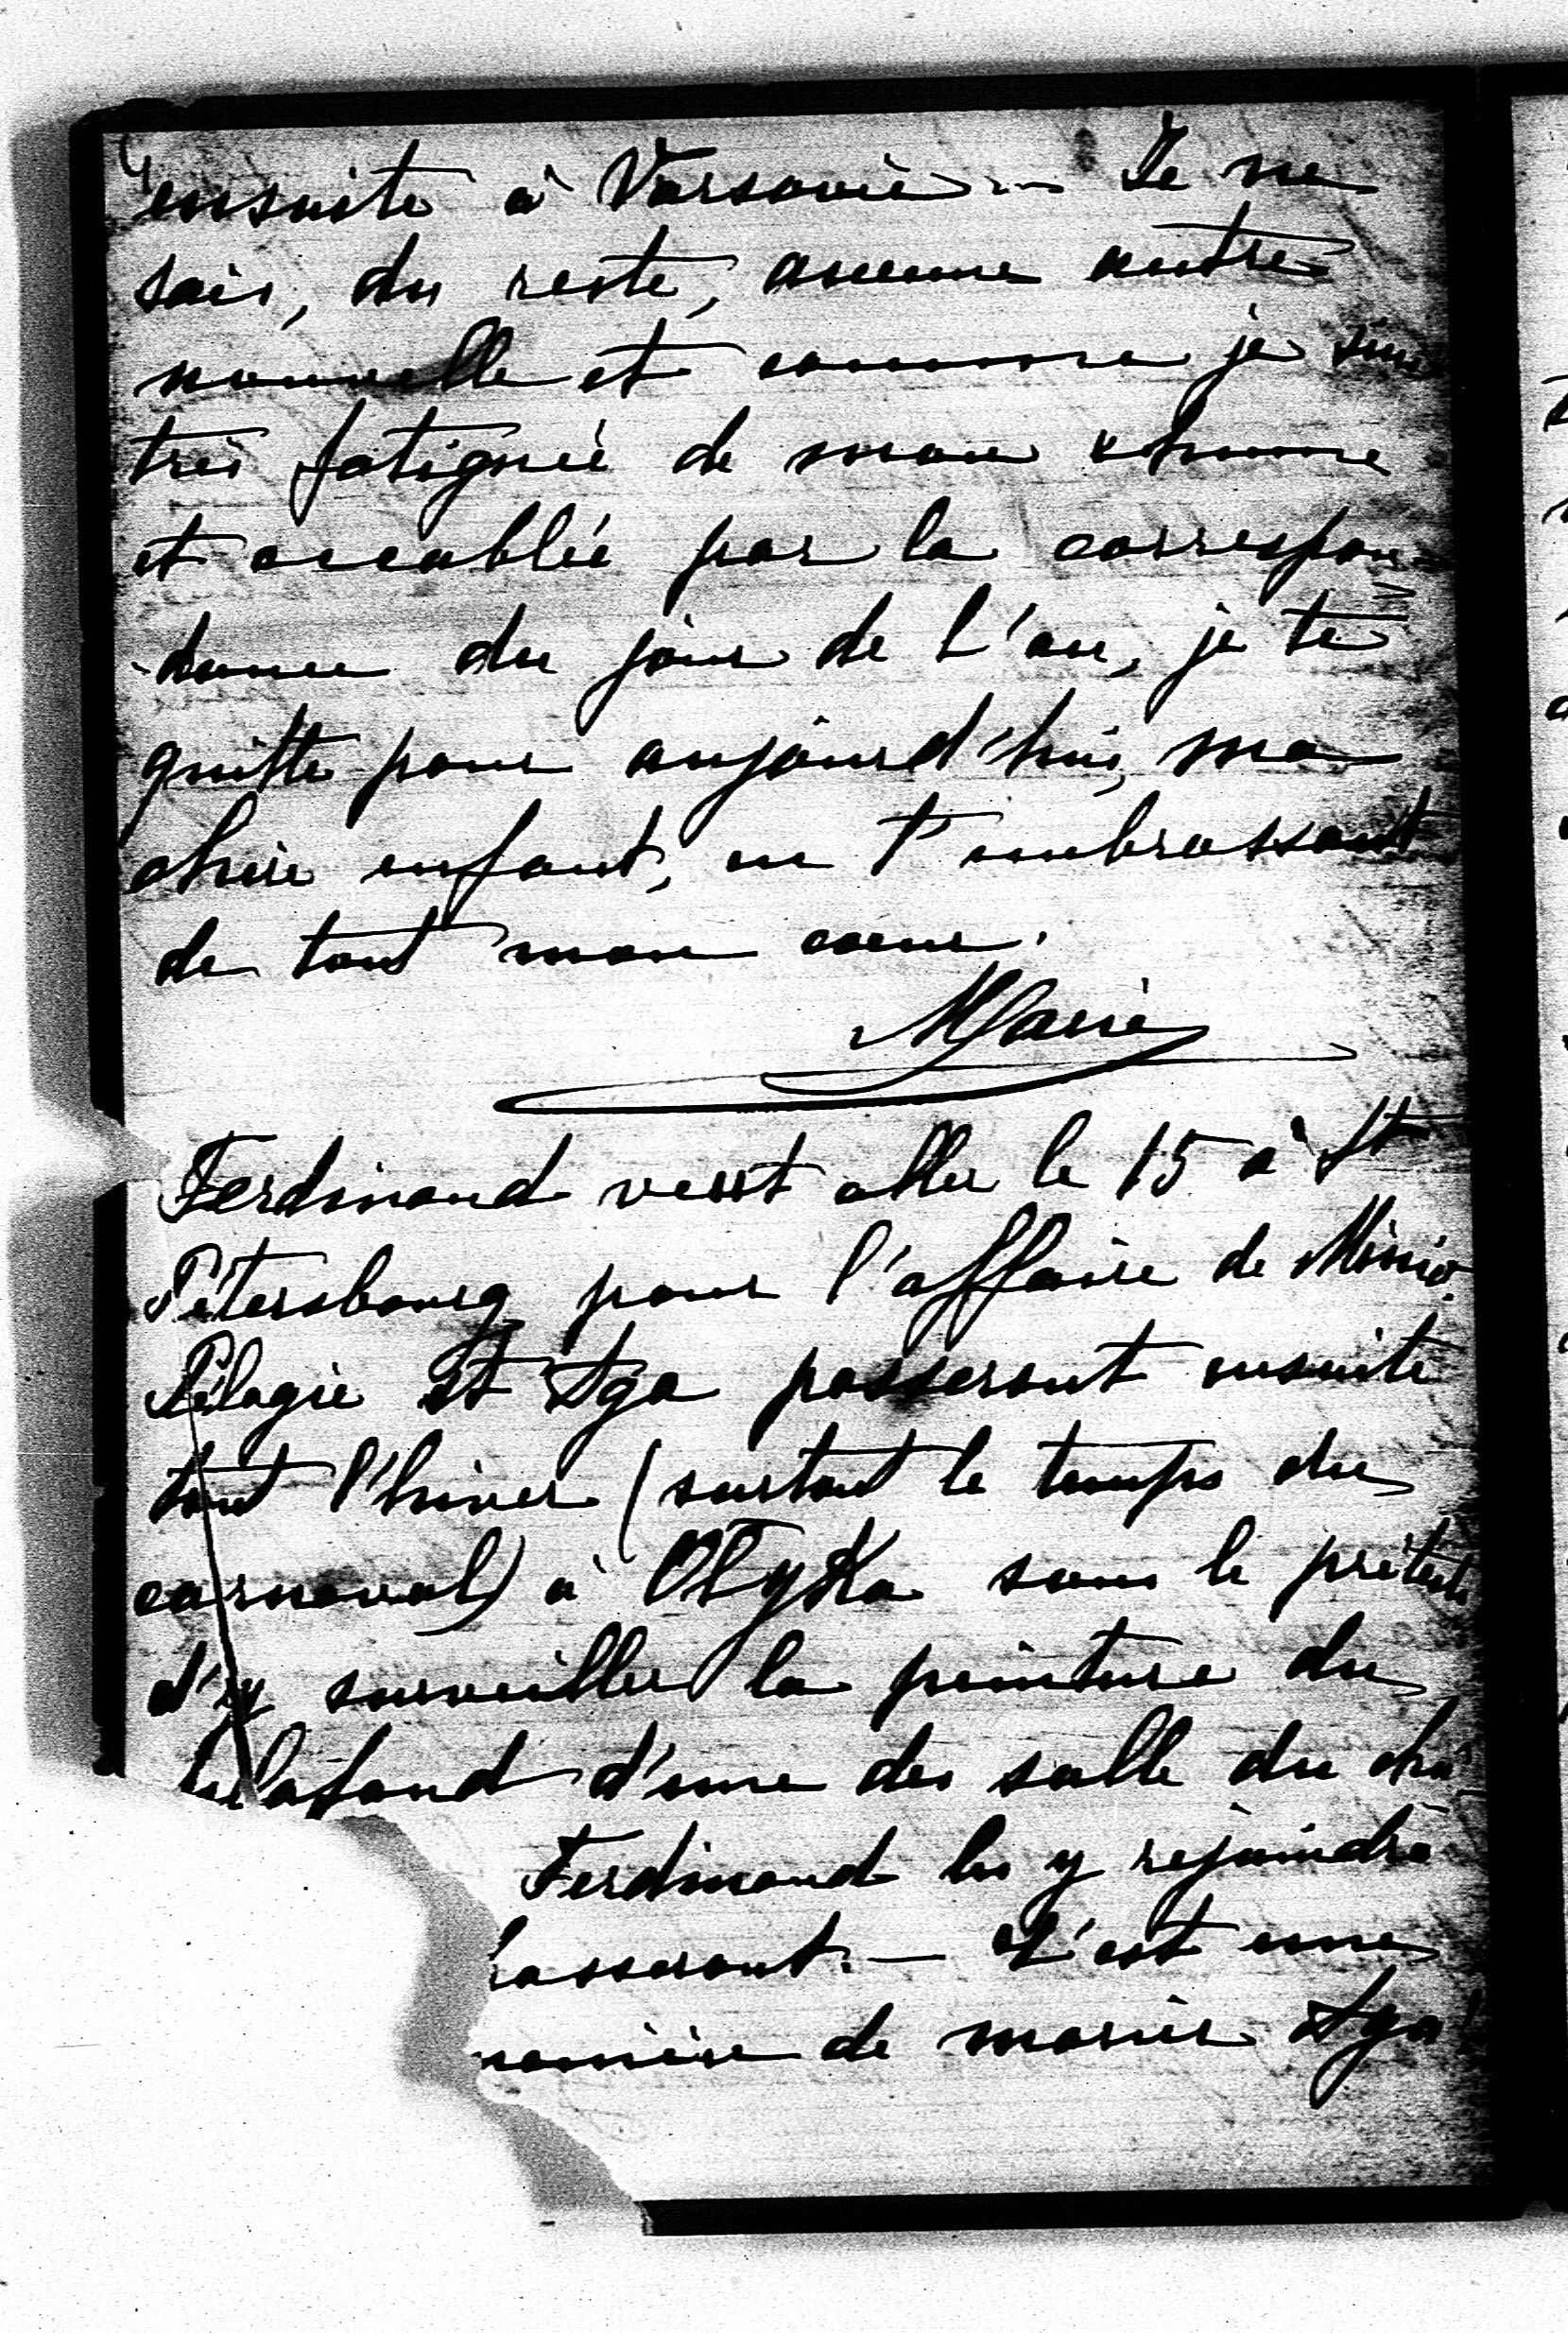 4
ensuite à Varsovie — Je ne
sais, du reste, aucune autre
nouvelle et comme je suis
très fatiguée de mon rhume
et accablée par la correspon-
dance du jour de l'an, je te
quitte pour aujourd'hui, ma
chère enfant, en t'embrassant
de tout mon coeur.
Marie
Ferdinand veut aller le 15 à St
Pétersbourg pour l'affaire de Minio.
Pélagie et Iga passeront ensuite
tout l'hiver (surtout le temps du
carnaval) à Ołyka sous le prétexte
d'y surveiller la peinture du
plafond d'une des salle du châ-
Ferdinand les y rejoindra
hasseront. — C'est une
manière de marier Iga!